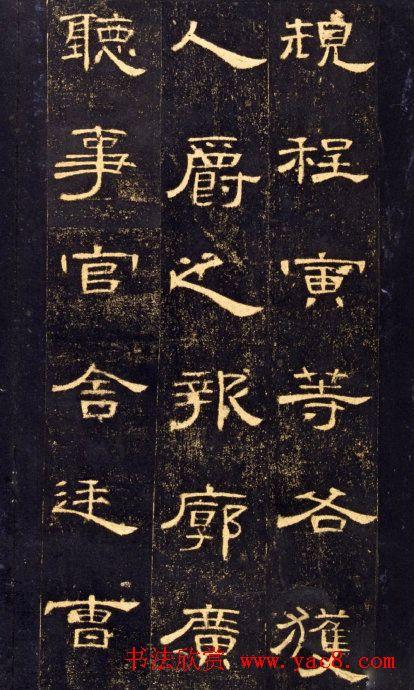 規程寅等各獲
人爵之報廓廣
聽事官舍廷曹
书法欣赏 www.yac8.com